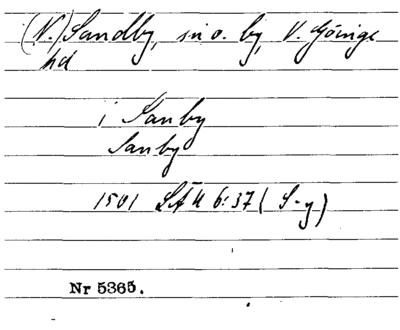 (N.) Sandby, sn o. by, V. Göinge
hd
i Sanby
Sanby
1501 SÄU 6:37 (S-y)
Nr 5365.